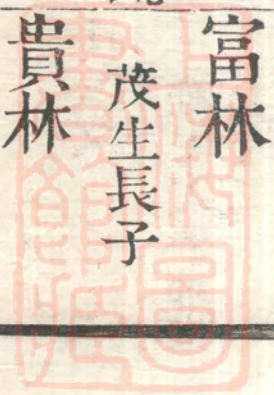 富林
茂生長子
貴林